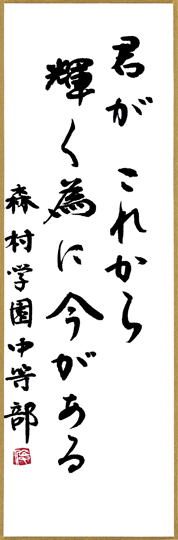 君が これから
輝く為に今がある
森村学園中等部